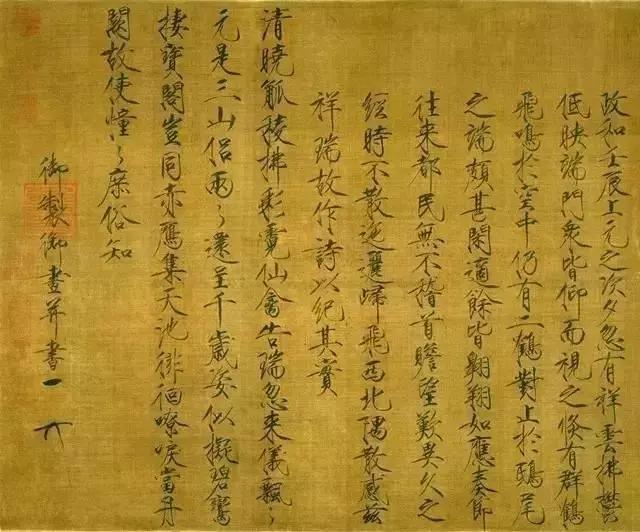 政和壬辰上元之次夕忽有祥雲拂鬱
低映端門衆皆仰而視之倏有群鶴
飛鳴於空中仍有二鶴對止於鴟尾
之端頗甚閑適餘皆翱翔如應奏節
往来都民無不稽首瞻望歎異久之
經時不散迤邐歸飛西北隅散感茲
祥瑞故作詩以紀其實
清曉觚稜拂彩霓仙禽告瑞忽来儀飄〻
元是三山侶兩〻還呈千歲姿似擬碧鸞
棲寶閣豈同赤鴈集天池徘徊嘹唳當丹
闕故使憧〻庶俗知
御製御畫并書